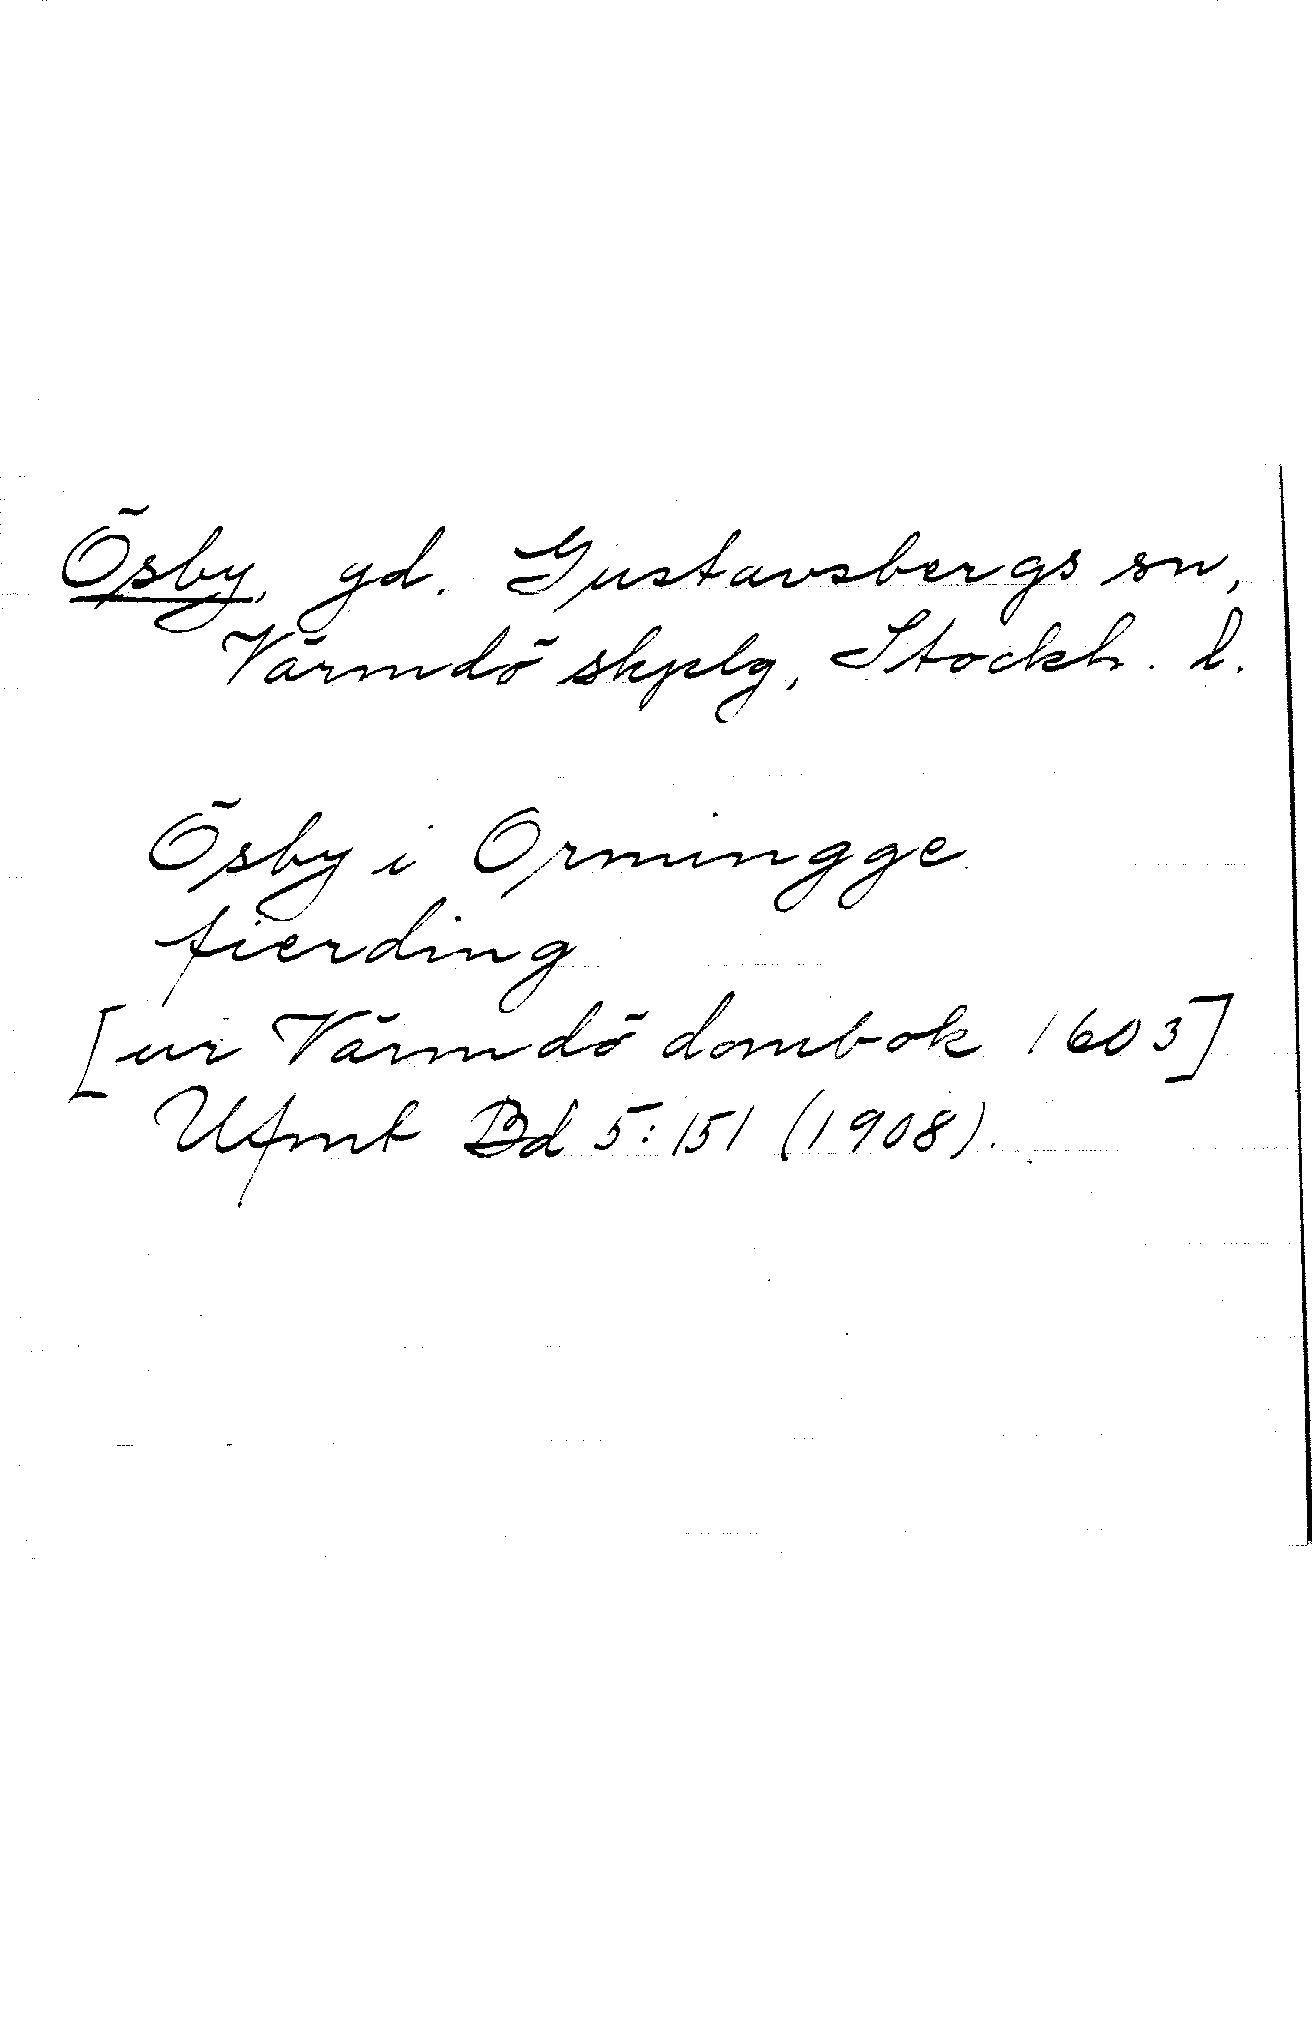 Ösby, gd. Gustavsbergs sn,
Värmdö skplg, Stockh. l.
Ösby i Ormingge
fierding
[ur Värmdö dombok 1603]
Ufmt Bd 5:151 (1908).